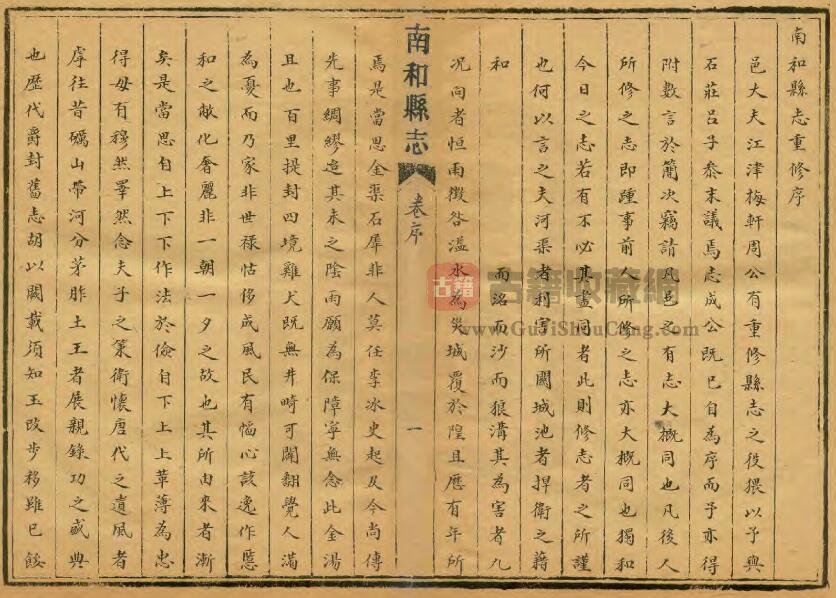 南和縣志重修序
邑大夫江津梅軒周公有重修縣志之役猥以予與
石莊呂子叅末議焉志成公既已自為序而予亦得
附數言於簡次竊請凡邑之有志大概同也凡後人
所修之志即踵事前人所修之志亦大概同也獨和
今日之志若有不必其盡同者此則修志者之所謹
也何以言之夫河渠者利害所關城池者捍衛之藉
和　　　　　而洺而沙而狼溝其為害者九
况向者恒雨徵咎溢水為災城覆於隍且歷有年所
南和縣志
卷序
一
焉是當思金渠石犀非人莫任李冰史起及今尚傳
先事綢繆迨其未之陰雨願為保障寧無念此金湯
且也百里提封四境雞犬既無井畸可闢翻覺人滿
為憂而乃家非世祿怙侈成風民有惼心該逸作慝
和之敝化奢麗非一朝一夕之故也其所由來者漸
矣是當思自上下下作法於儉自下上上革薄為忠
得毋有穆然睪然念夫子之策衛懷唐代之遺風者
虖往昔礪山帶河分茅胙土王者展親錄功之盛典
也歷代爵封舊志胡以闕載須知玉改步移雖已餒
古籍
古籍收藏網
www.GuJiShouCang.com